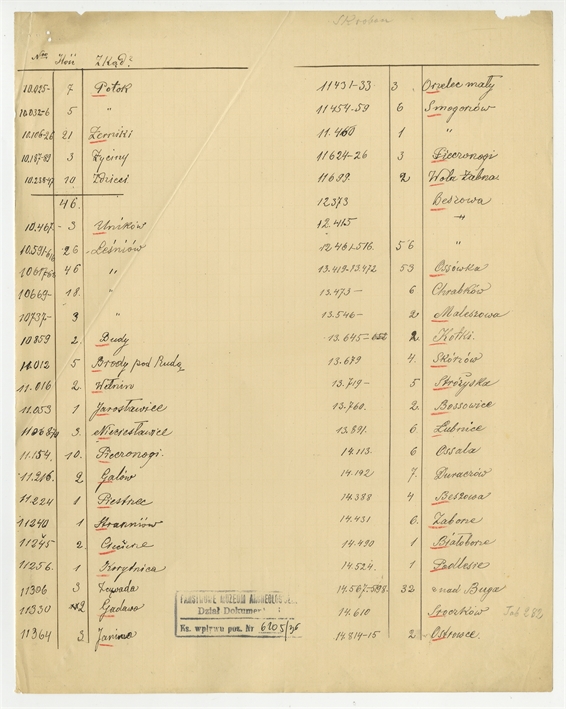 Skroben
Nra Ilość Zkąd?
10.025- 7 Potok
10.032-6 5 "
10.106-26 21 Żerniki
10.187-81 3 Życiny
10.238-47 10 Zdzieci
46.
10.467- 3 Uników
10.591-616 26 Leśniów
46 "
10669- 18. "
10737- 3 "
10859 2. Budy
11.012 5 Brody pod Rudą
11.016 2. Wełnin
11.053 1 Jarosławice
3. Niecisławice
11.154. 10. Pieczonogi.
11.216. 2 Galów
11.224 1 Piestrzec
11240 1
11245 2.
11256. 1 Korytnica
11306 3 Zawada
11330 2 Gadawa
11364 3 Janina
11431-33 3. Orzelec mały
11454-59 6 Smogorzów
11.460 1 "
11624-26 3 Pieczonogi
11699 2 Wola Żabna
12373 Beszowa
12.415 "
12461-516. 56 "
13.419-13.472 53 Ossówka
13.473- 6. Chrabków
13.546- 2. Maleszowa
13.645-652 2 Kotki.
13.679 4. Skórzów
13.719- 5 Strożyska
13.760. 2. Bossowice
13.891. 6 Łubnice
14.113. 6 Ossala
14.192 7. Duraczów
14.388 4 Beszowa
14.431 6. Zaborze
14.490 1 Białoborze
14.524. 1 Podlesie
14.567-598. 32 z nad Buga
14.610 Tab 282
14.814-15 2. Ostrowce.
PAŃSTWOWE MUZEUM ARCHEOLOG.
Dział Dokumen
Ks. wpływu poz. Nr 6105/36